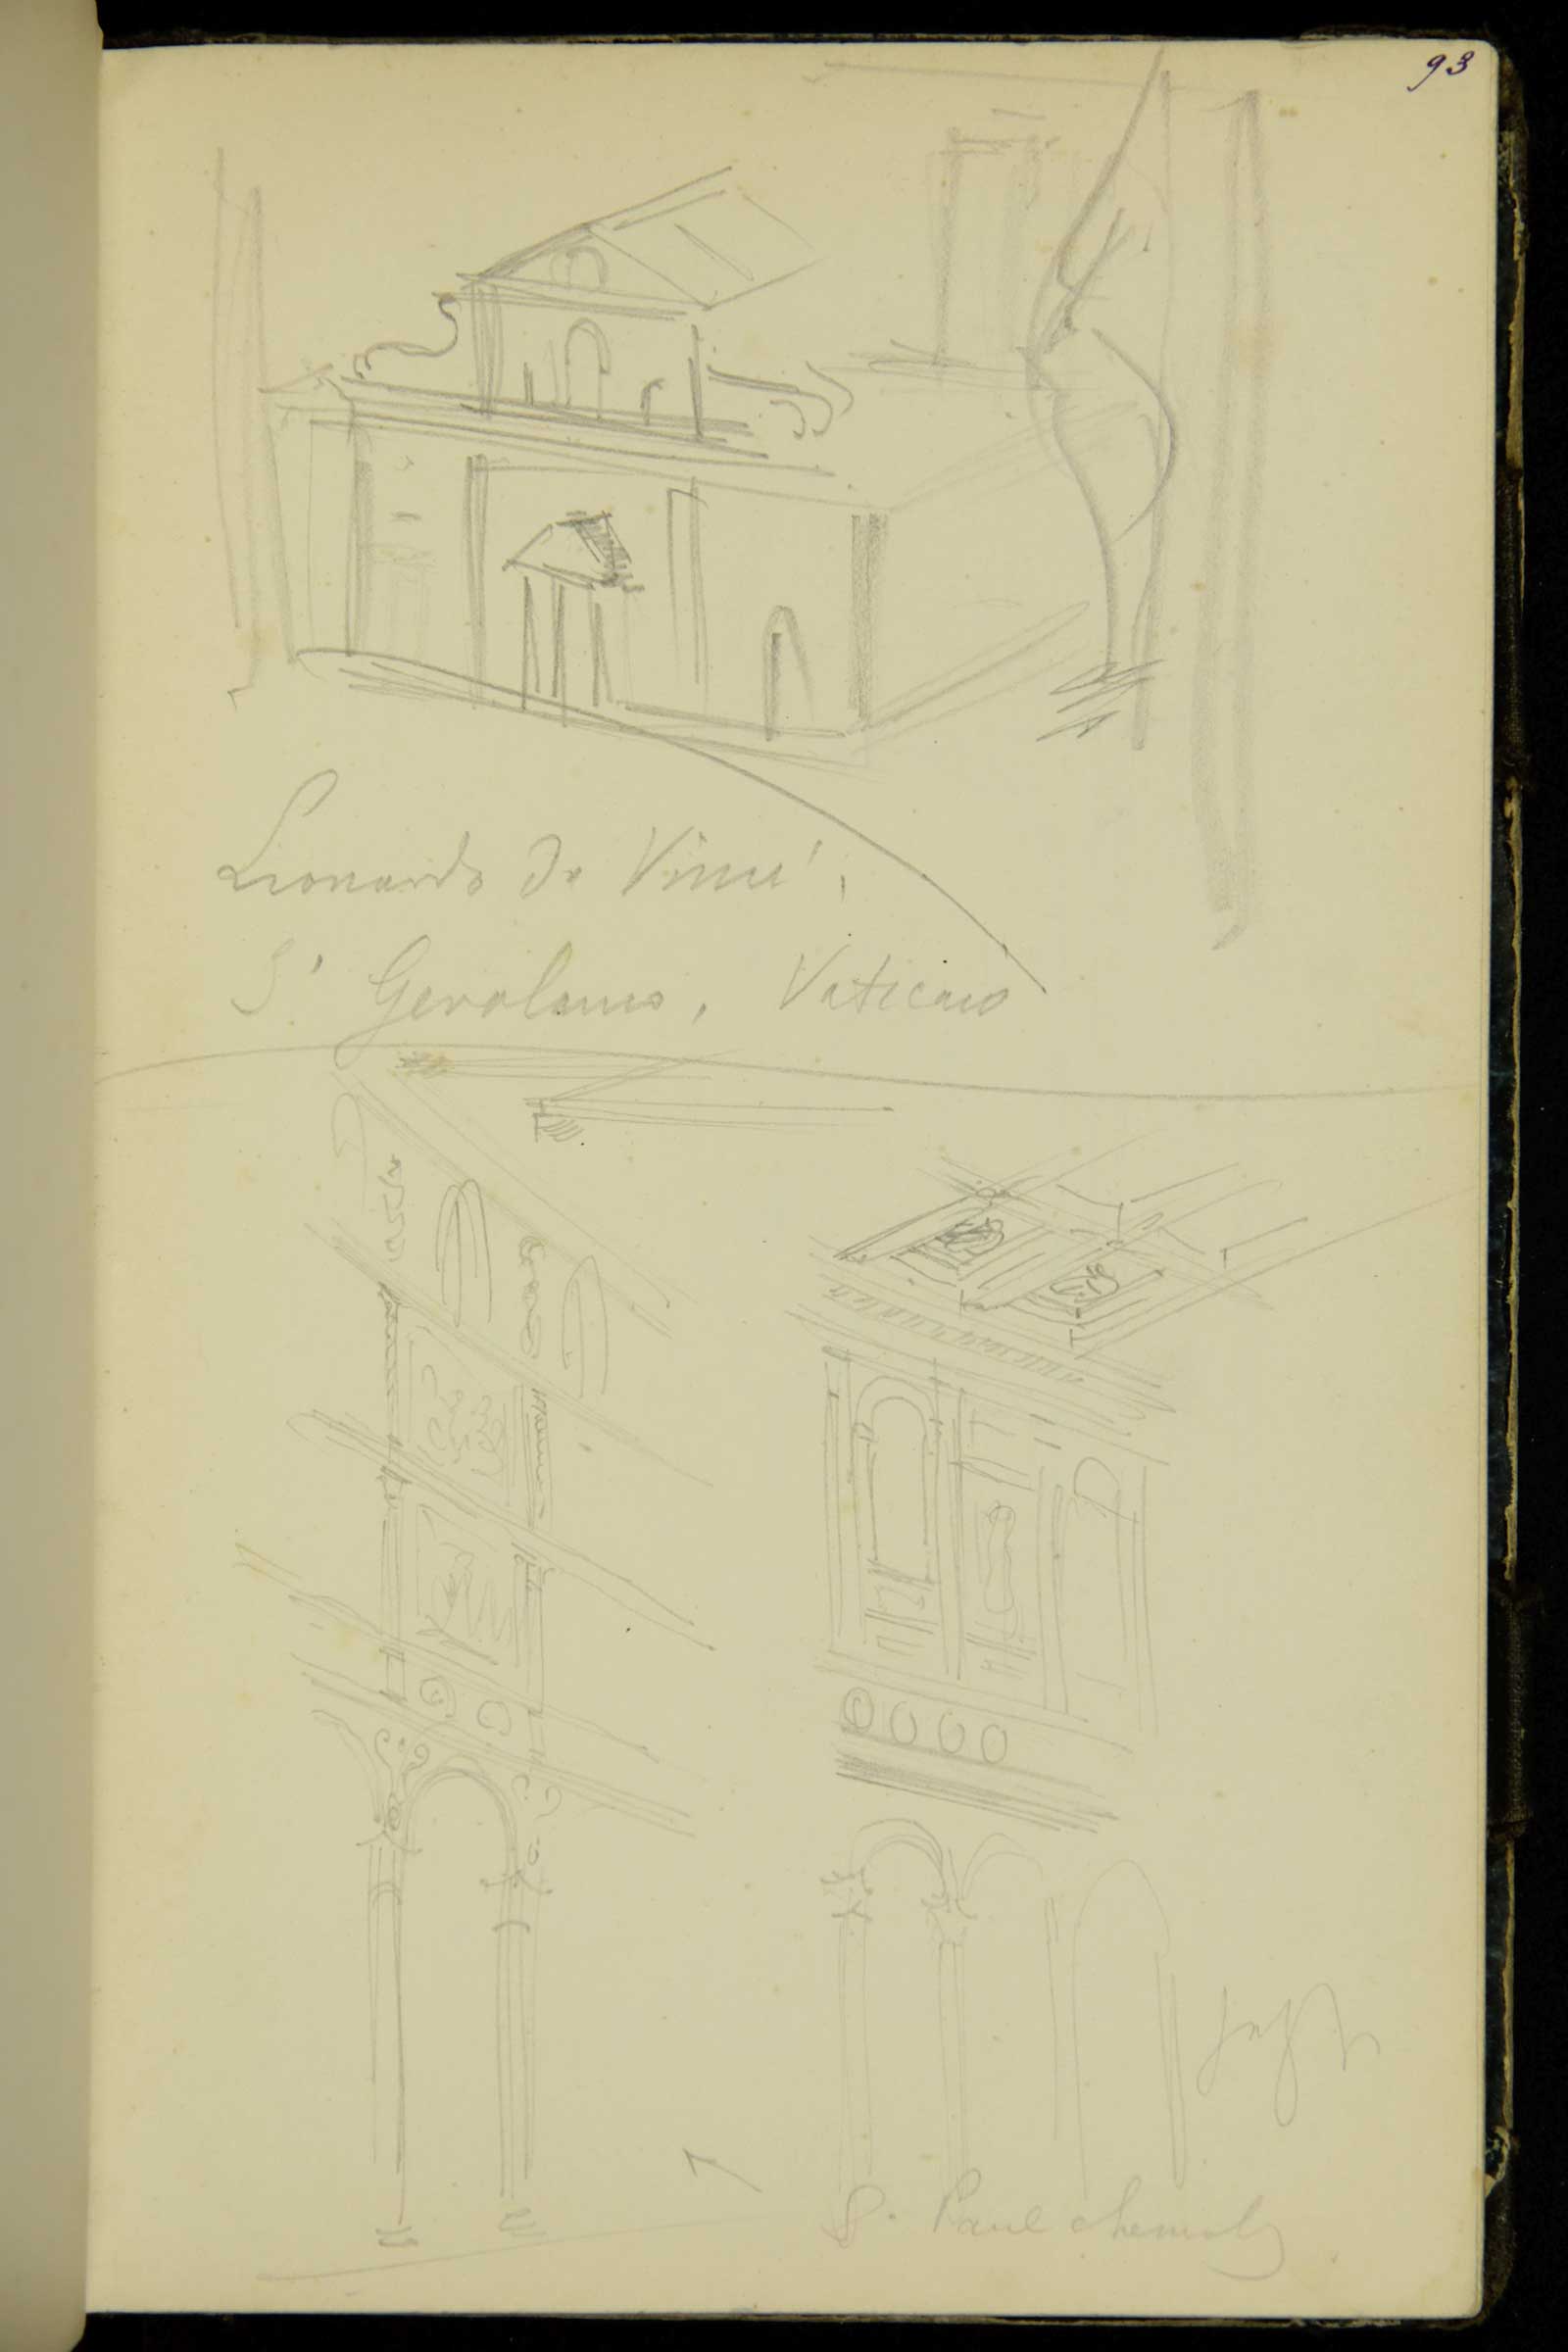 93
Lionardo da Vinci,
St Gerolamo, Vaticano
jetzt
S. Paul ehemals